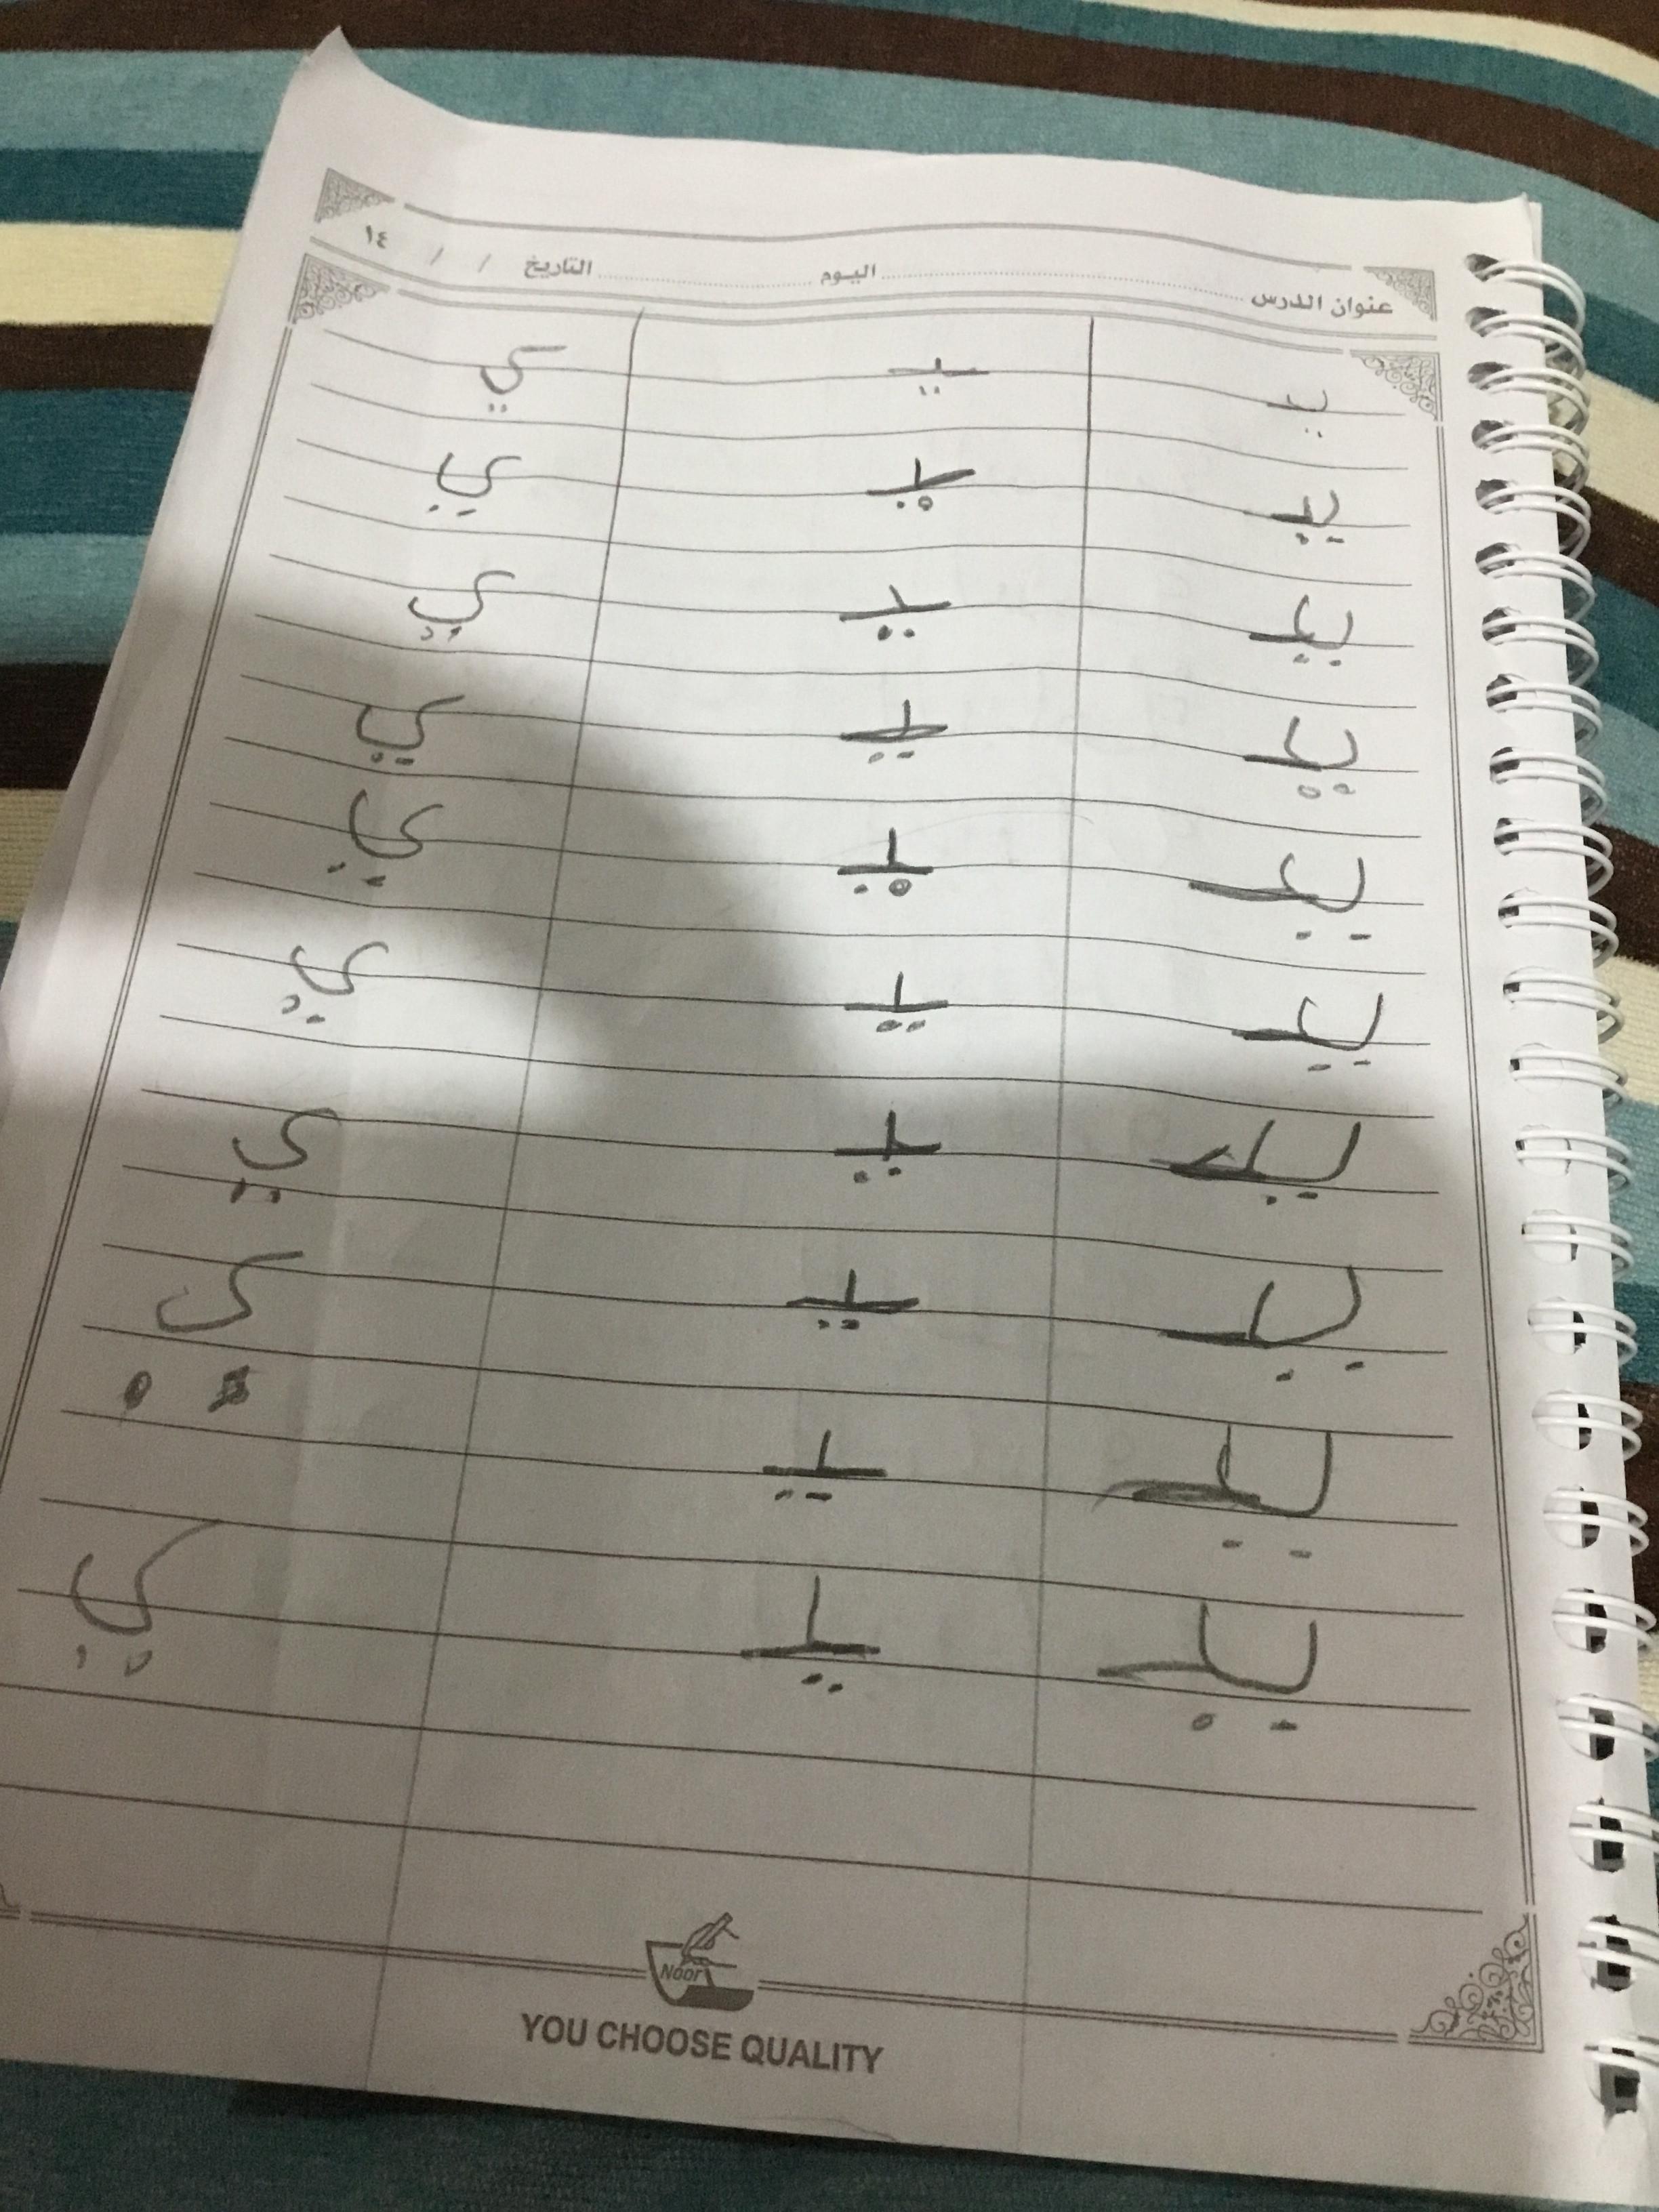 عنوان الدرس اليوم التاريخ / / ١٤
يـ ـيـ ي
يـ ـيـ ي
يـ ـيـ ي
يـ ـيـ ي
يـ ـيـ ي
يـ ـيـ ي
يـ ـيـ ي
يـ ـيـ ي
يـ ـيـ
يـ ـيـ ي
Noor
YOU CHOOSE QUALITY